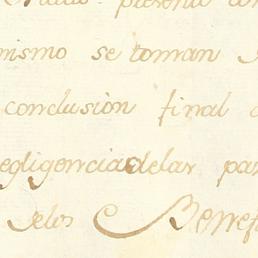 presenta con
mismo se toman
conclusión final
egligenciadelas par
delos Benef